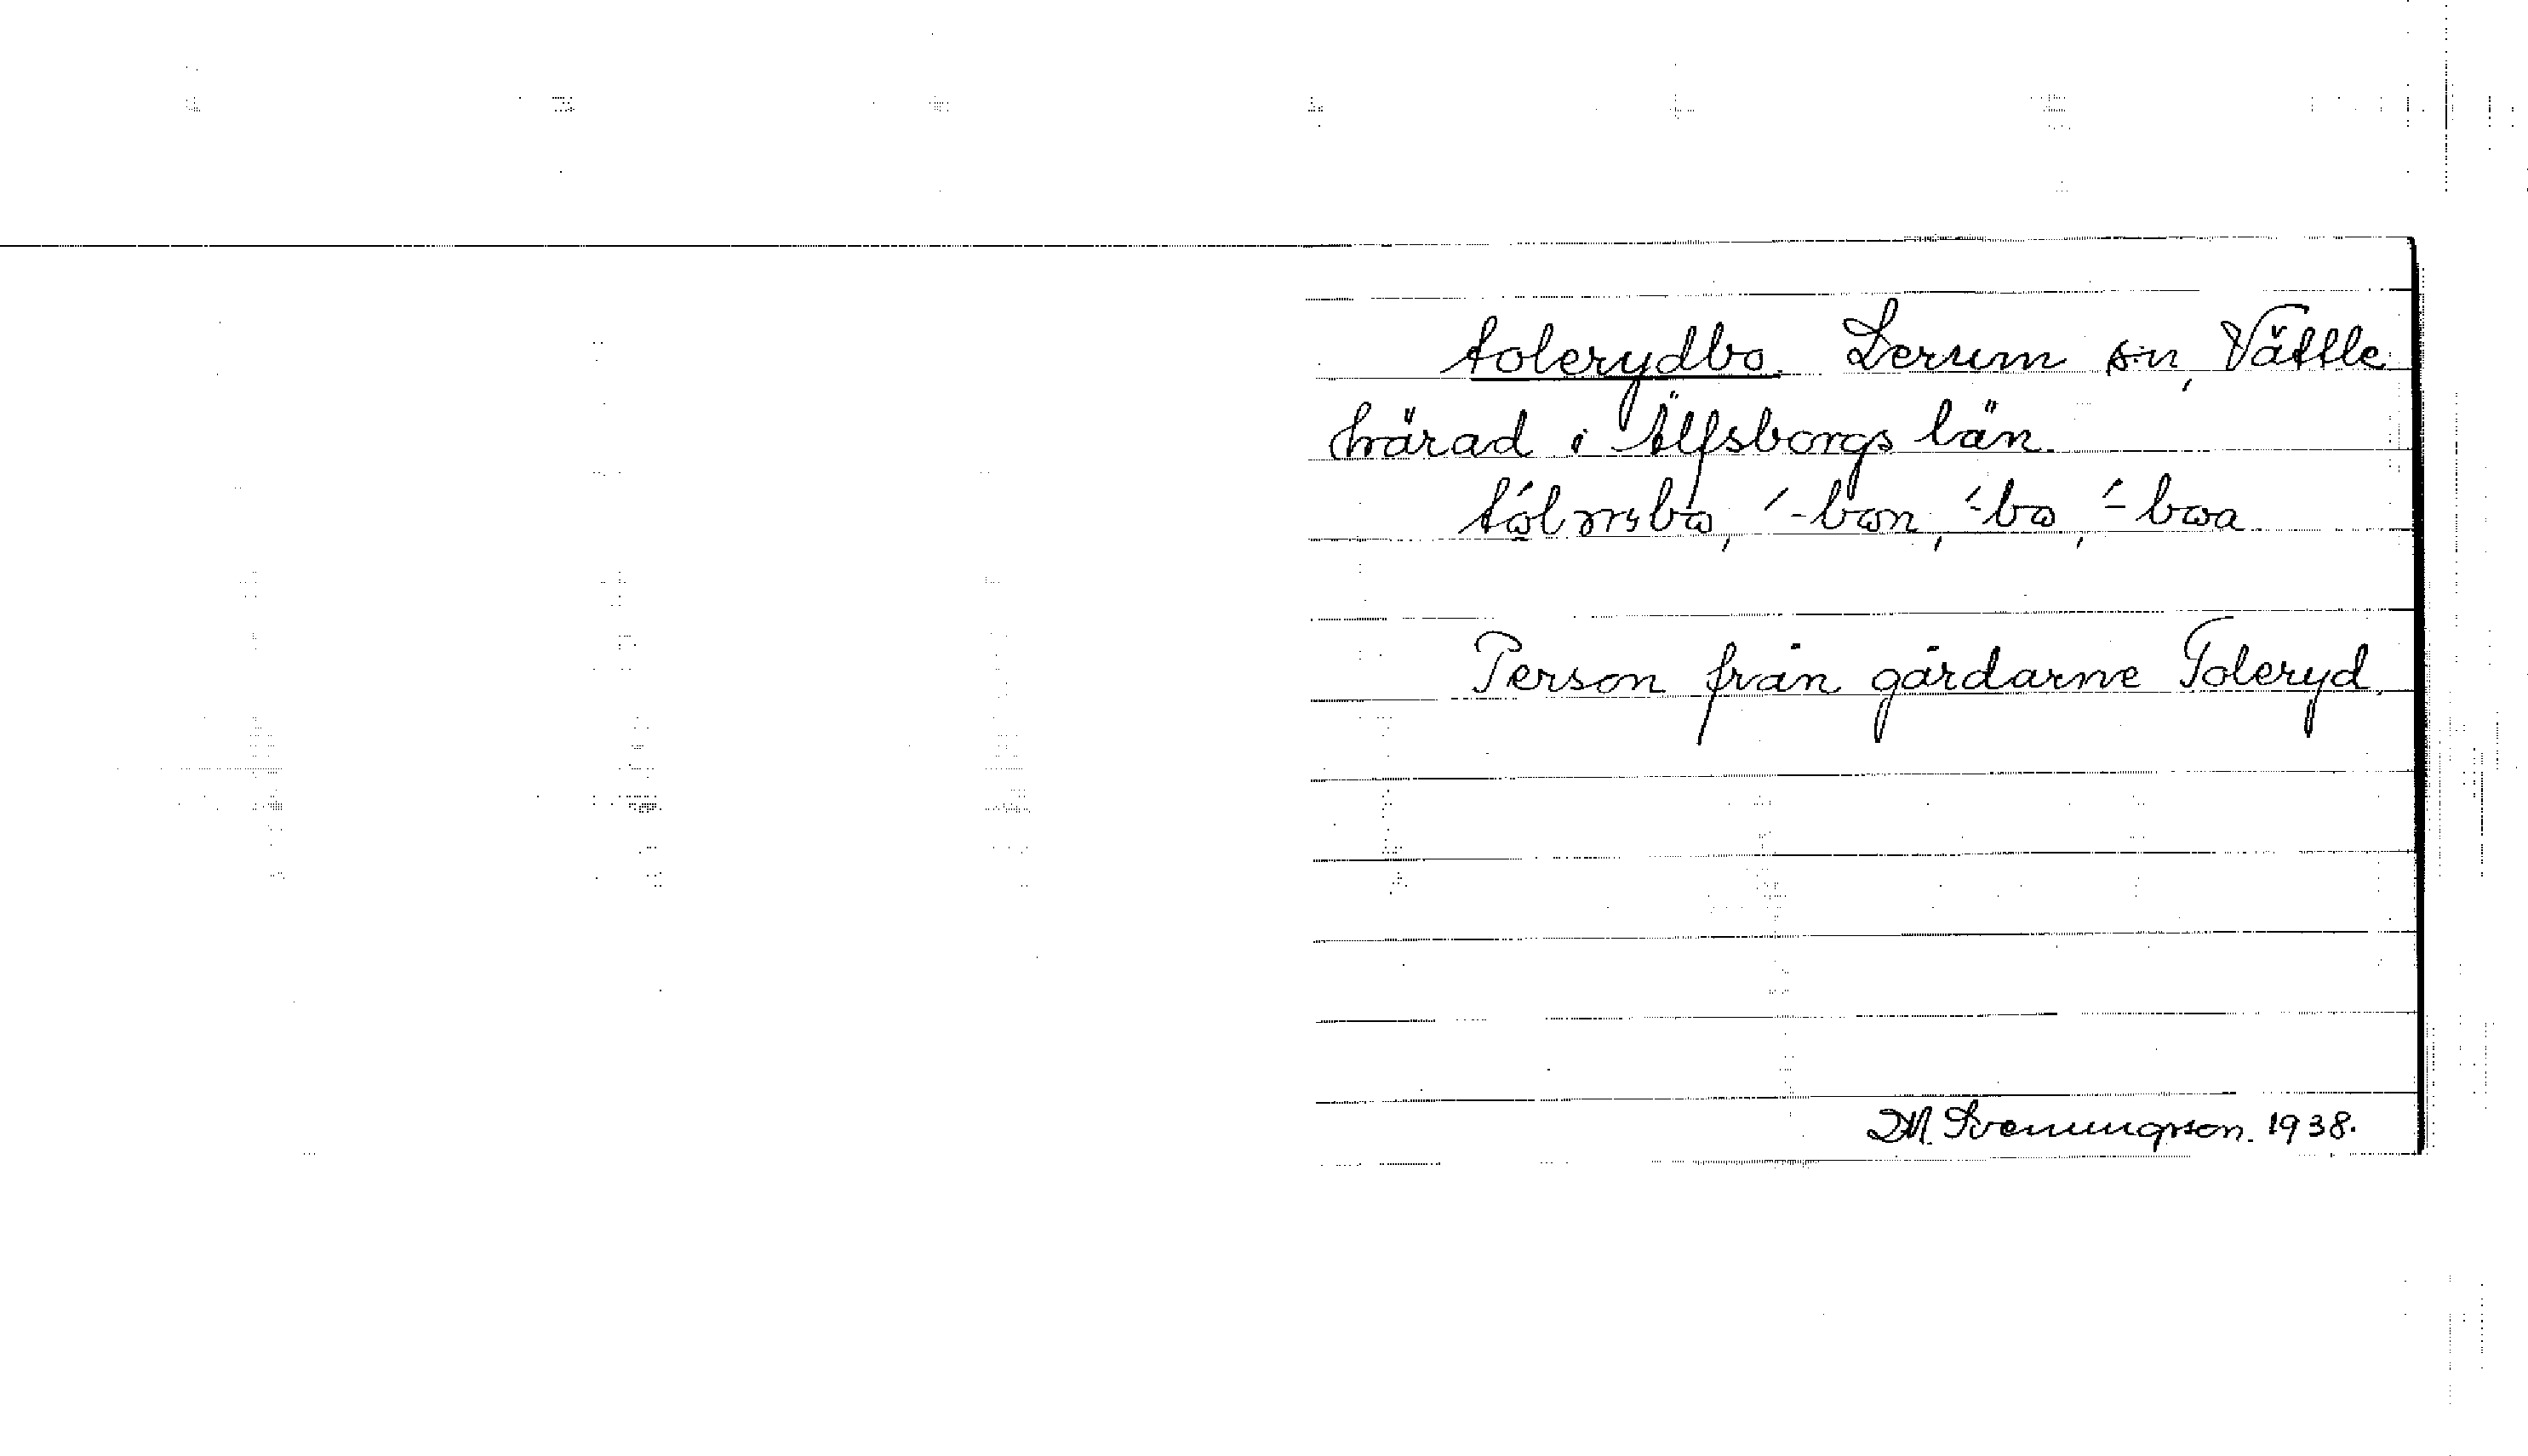 tolerydbo. Lerum sn, Vättle
härad i Älfsborgs län.
-bon, -bo, -boa
Person från gårdarne Toleryd.
DM. Svenungsson. 1938.